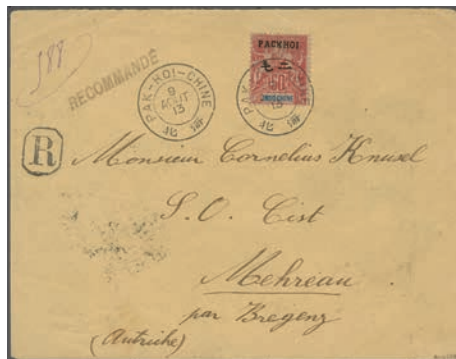 188
RECOMMANDÉ
PAK-HOI-CHINE
9
AOUT
13
北海
PACKHOI
PAK
NE
13
北海
R
Monsieur Cornelius Knusel
S. O. Cist
Mehreau
par Bregenz
(Autriche)